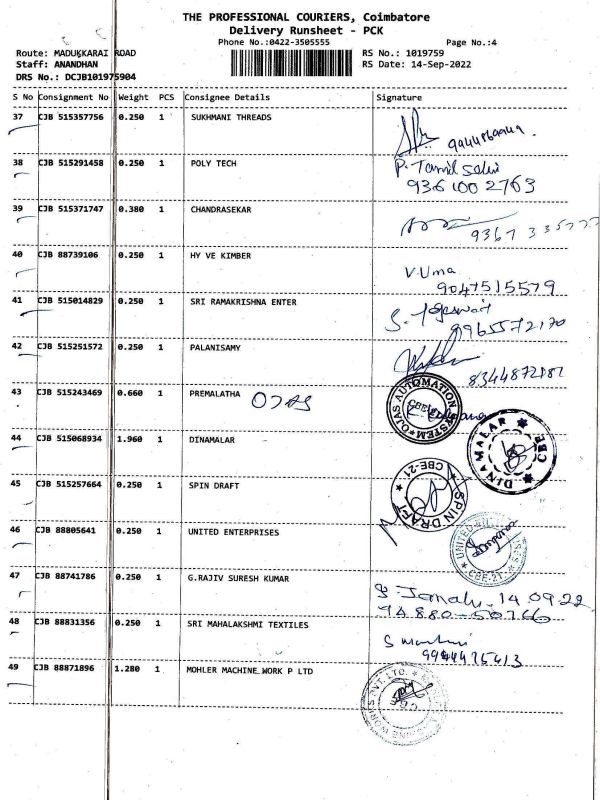 THE PROFESSIONAL COURIERS, Coimbatore
Delivery Runsheet - PCK
Phone No.:0422-3505555 Page No.:4
Route: MADUKKARAI ROAD RS No.: 1019759
Staff: ANANDHAN RS Date: 14-Sep-2022
DRS No.: DCJB101975904
S No Consignment No Weight PCS Consignee Details Signature
37 CJB 515357756 0.250 1 SUKHMANI THREADS
38 CJB 515291458 0.250 1 POLY TECH P. Tamil Selvi
9361002763
39 CJB 515371747 0.380 1 CHANDRASEKAR
40 CJB 88739106 0.250 1 HY VE KIMBER V.Uma
9047515579
41 CJB 515014829 0.250 1 SRI RAMAKRISHNA ENTER
9965572170
42 CJB 515251572 0.250 1 PALANISAMY
43 CJB 515243469 0.660 1 PREMALATHA OJAS OJAS AUTOMATION SYSTEM CBE-21
44 CJB 515068934 1.960 1 DINAMALAR DINAMALAR CBE
45 CJB 515257664 0.250 1 SPIN DRAFT SPIN DRAFT CBE-21
46 CJB 88805641 0.250 1 UNITED ENTERPRISES UNITED CBE-21
47 CJB 88741786 0.250 1 G.RAJIV SURESH KUMAR 14.09.22
94880-50766
48 CJB 88831356 0.250 1 SRI MAHALAKSHMI TEXTILES
49 CJB 88871896 1.280 1 MOHLER MACHINE WORK P LTD